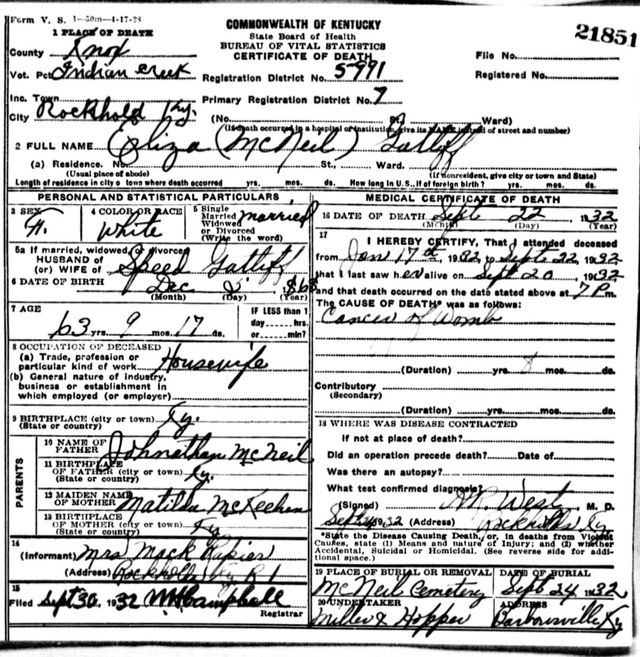 Form V. S. 1-50m-4-17-28
COMMONWEALTH OF KENTUCKY
State Board of Health
BUREAU OF VITAL STATISTICS
CERTIFICATE OF DEATH
21851
1 PLACE OF DEATH
County Knox
Vot. Pct Indian Creek
Inc. Town
City Rockhold Ky.
Registration District No. 5991
Primary Registration District No. 7
File No.
Registered No.
(No. St Ward)
(If death occurred in a hospital or institution, give its NAME instead of street and number)
2 FULL NAME Eliza (McNeil) Gatliff
(a) Residence. No. St., Ward.
(Usual place of abode) (If nonresident, give city or town and State)
Length of residence in city or town where death occurred yrs. mos. ds. How long in U.S., if of foreign birth? yrs. mos. ds.
PERSONAL AND STATISTICAL PARTICULARS
3 SEX F.
4 COLOR OR RACE White
5 Single Married Widowed or Divorced (Write the word) married
5a If married, widowed or divorced
HUSBAND of
(or) WIFE of Speed Gatliff
6 DATE OF BIRTH Dec
(Month) (Day) (Year)
7 AGE
63 yrs. 9 mos. 17 ds.
IF LESS than 1 day hrs. or min?
8 OCCUPATION OF DECEASED
(a) Trade, profession or particular kind of work Housewife
(b) General nature of industry, business or establishment in which employed (or employer)
9 BIRTHPLACE (city or town) Ky.
(State or country)
PARENTS
10 NAME OF FATHER Johnathan McNeil
11 BIRTHPLACE OF FATHER (city or town) Ky.
(State or country)
12 MAIDEN NAME OF MOTHER Matilda McKeehan
13 BIRTHPLACE OF MOTHER (city or town) Ky
(State or country)
14
(Informant) Mrs Mack
(Address) Rockholds Ky R 1
15
Filed Sept 30, 1932 Campbell
Registrar
MEDICAL CERTIFICATE OF DEATH
16 DATE OF DEATH Sept 22 1932
(Month) (Day) (Year)
17
I HEREBY CERTIFY, That I attended deceased
from Jan 17th, 1932 to Sept 22, 1932
that I last saw her alive on Sept 20, 1932
and that death occurred on the date stated above at 7 P.m.
The CAUSE OF DEATH* was as follows:
Cancer of Womb
(Duration) yrs. 8 mos. ds.
Contributory
(Secondary)
(Duration) yrs. mos. ds.
18 WHERE WAS DISEASE CONTRACTED
If not at place of death?
Did an operation precede death? Date of
Was there an autopsy?
What test confirmed diagnosis?
(Signed) West M. D.
Sept 1932 (Address) Rockholds Ky
*State the Disease Causing Death, or, in deaths from Violent Causes, state (1) Means and nature of Injury; and (2) whether Accidental, Suicidal or Homicidal. (See reverse side for additional space.)
19 PLACE OF BURIAL OR REMOVAL
McNeil Cemetery
DATE OF BURIAL
Sept 24 1932
20 UNDERTAKER
Miller & Hopper
ADDRESS
Barbourville Ky